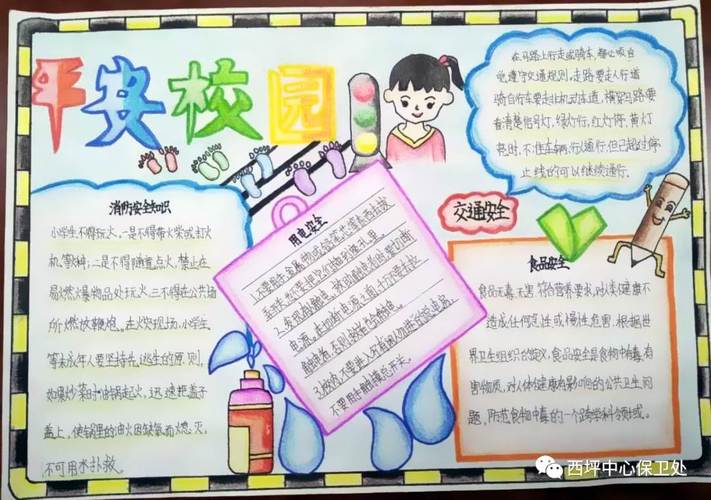 平安校园
在马路上行走或骑车,都必须自
觉遵守交通规则,走路要走人行道
骑自行车要走非机动车道,横穿马路要
看清楚信号灯,绿灯行,红灯停,黄灯
亮时,不准车辆行人通行,但已超过停
止线的可以继续通行。
消防安全知识
小学生不得玩火,一是不得带火柴或打火
机等火种;二是不得随意点火,禁止在
易燃爆物品处玩火,三不得在公共场
所燃放鞭炮。在火灾现场,小学生
等未成年人要坚持先逃生的原则,
如果炒菜时油锅起火,迅速把盖子
盖上,使锅里的油火因缺氧而熄灭,
不可用水扑救。
用电安全
1.不要用手、金属物或铅笔芯等东西去拨
弄开关,也不要把它们插到插孔里。
电流。在切断电源之前
触电者,否则救援也会触电。
不要用手触摸
交通安全
食品安全
食品无毒、无害,符合营养要求,对人体健康不
造成任何急性或慢性危害,根据世
界卫生组织的定义,食品安全是食物中有毒、有
害物质,对人体健康有影响的公共卫生问
题,防范食物中毒的一个跨学科领域。
西坪中心保卫处